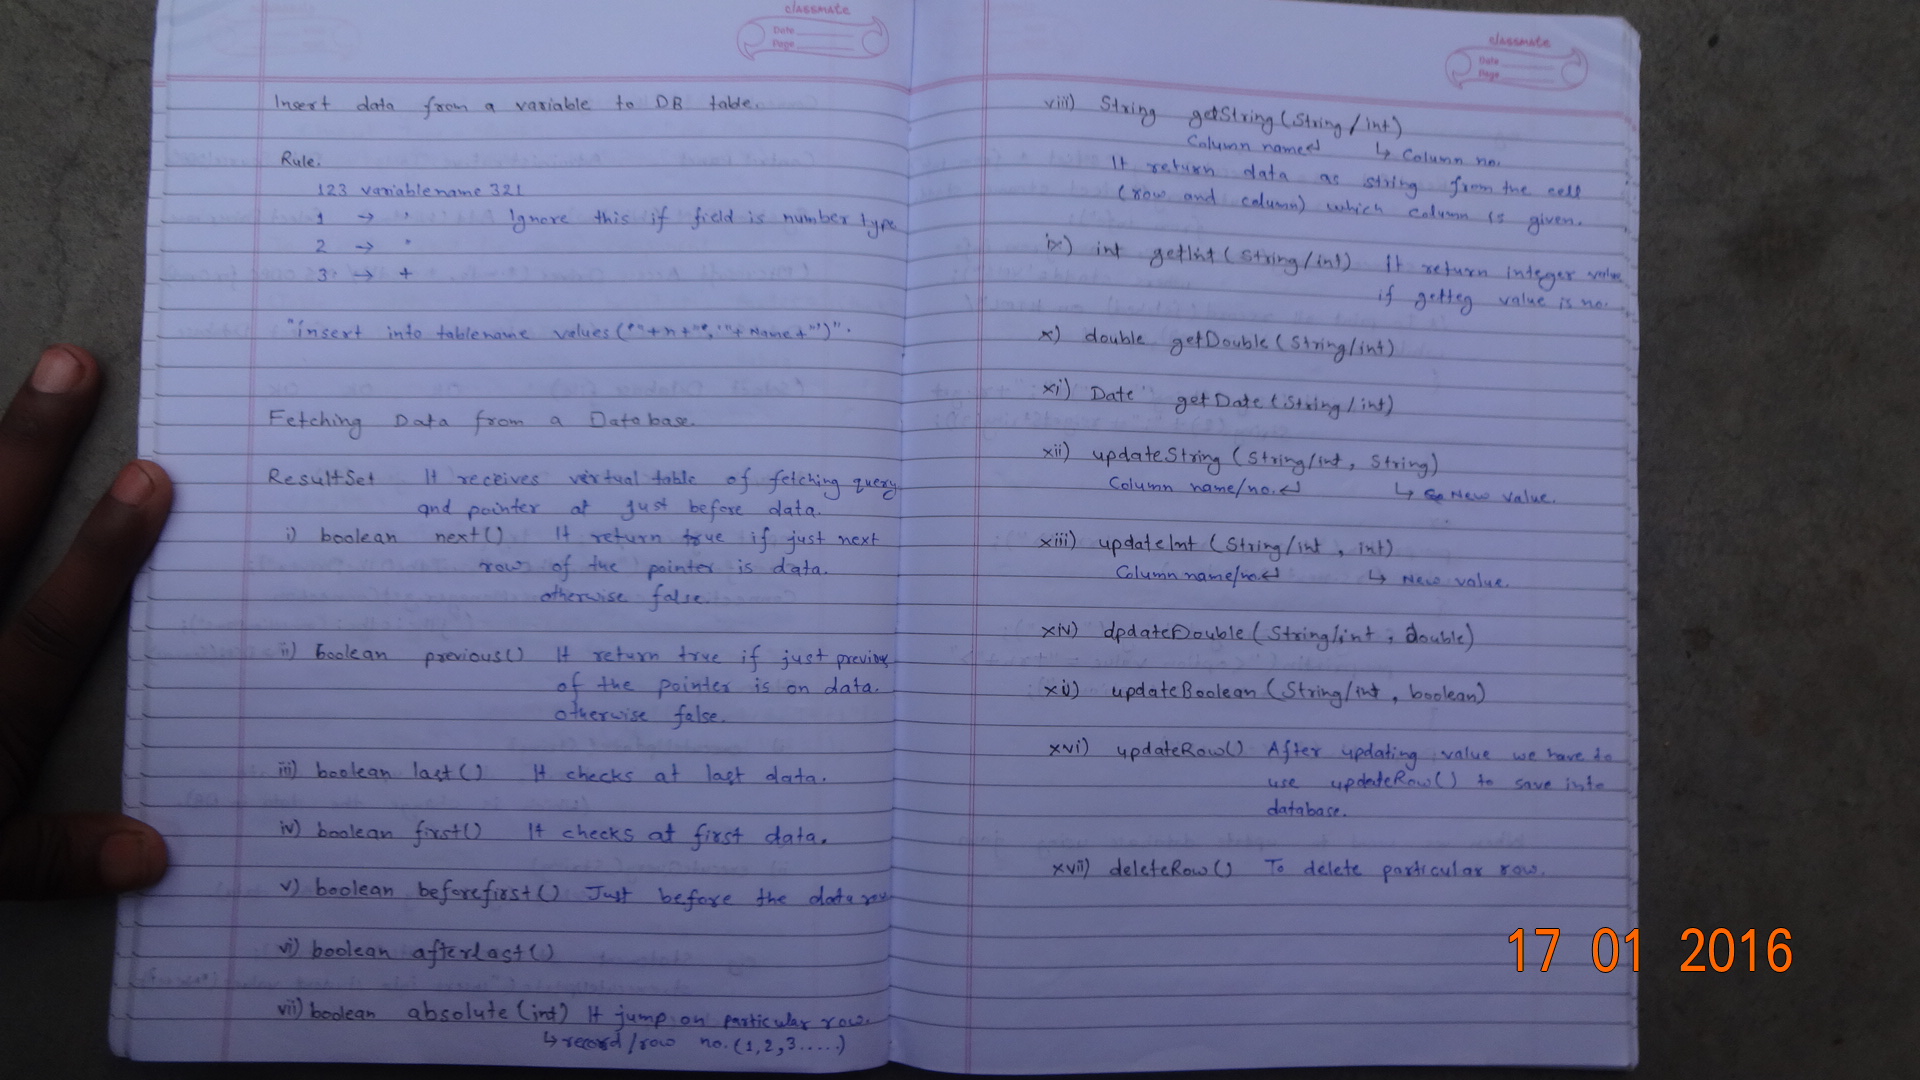 classmate
Date
Page
Insert data from a variable to DB table.
Rule.
123 variablename 321
1 → ' Ignore this if field is number type
2 → "
3 → +
"insert into tablename values('"+n+"','"+Name+"')".
Fetching Data from a Database.
ResultSet It receives virtual table of fetching query
and pointer at just before data.
i) boolean next() It return true if just next
row of the pointer is data.
otherwise false.
ii) boolean previous() It return true if just previous
of the pointer is on data.
otherwise false.
iii) boolean last() It checks at last data.
iv) boolean first() It checks at first data.
v) boolean beforefirst() Just before the data row
vi) boolean afterlast()
vii) boolean absolute(int) It jump on particular row.
↳ record/row no.(1,2,3.....)
classmate
Date
Page
viii) String getString(String/int)
Column name↵ ↳ Column no.
It return data as string from the cell
(row and column) which column is given.
ix) int getInt(String/int) It return integer value
if getteg value is no.
x) double getDouble(String/int)
xi) Date getDate(String/int)
xii) updateString(String/int, String)
Column name/no.↵ ↳ New value.
xiii) updateInt(String/int, int)
Column name/no.↵ ↳ New value.
xiv) dpdateDouble(String/int, double)
xv) updateBoolean(String/int, boolean)
xvi) updateRow() After updating value we have to
use updateRow() to save into
database.
xvii) deleteRow() To delete particular row.
17 01 2016